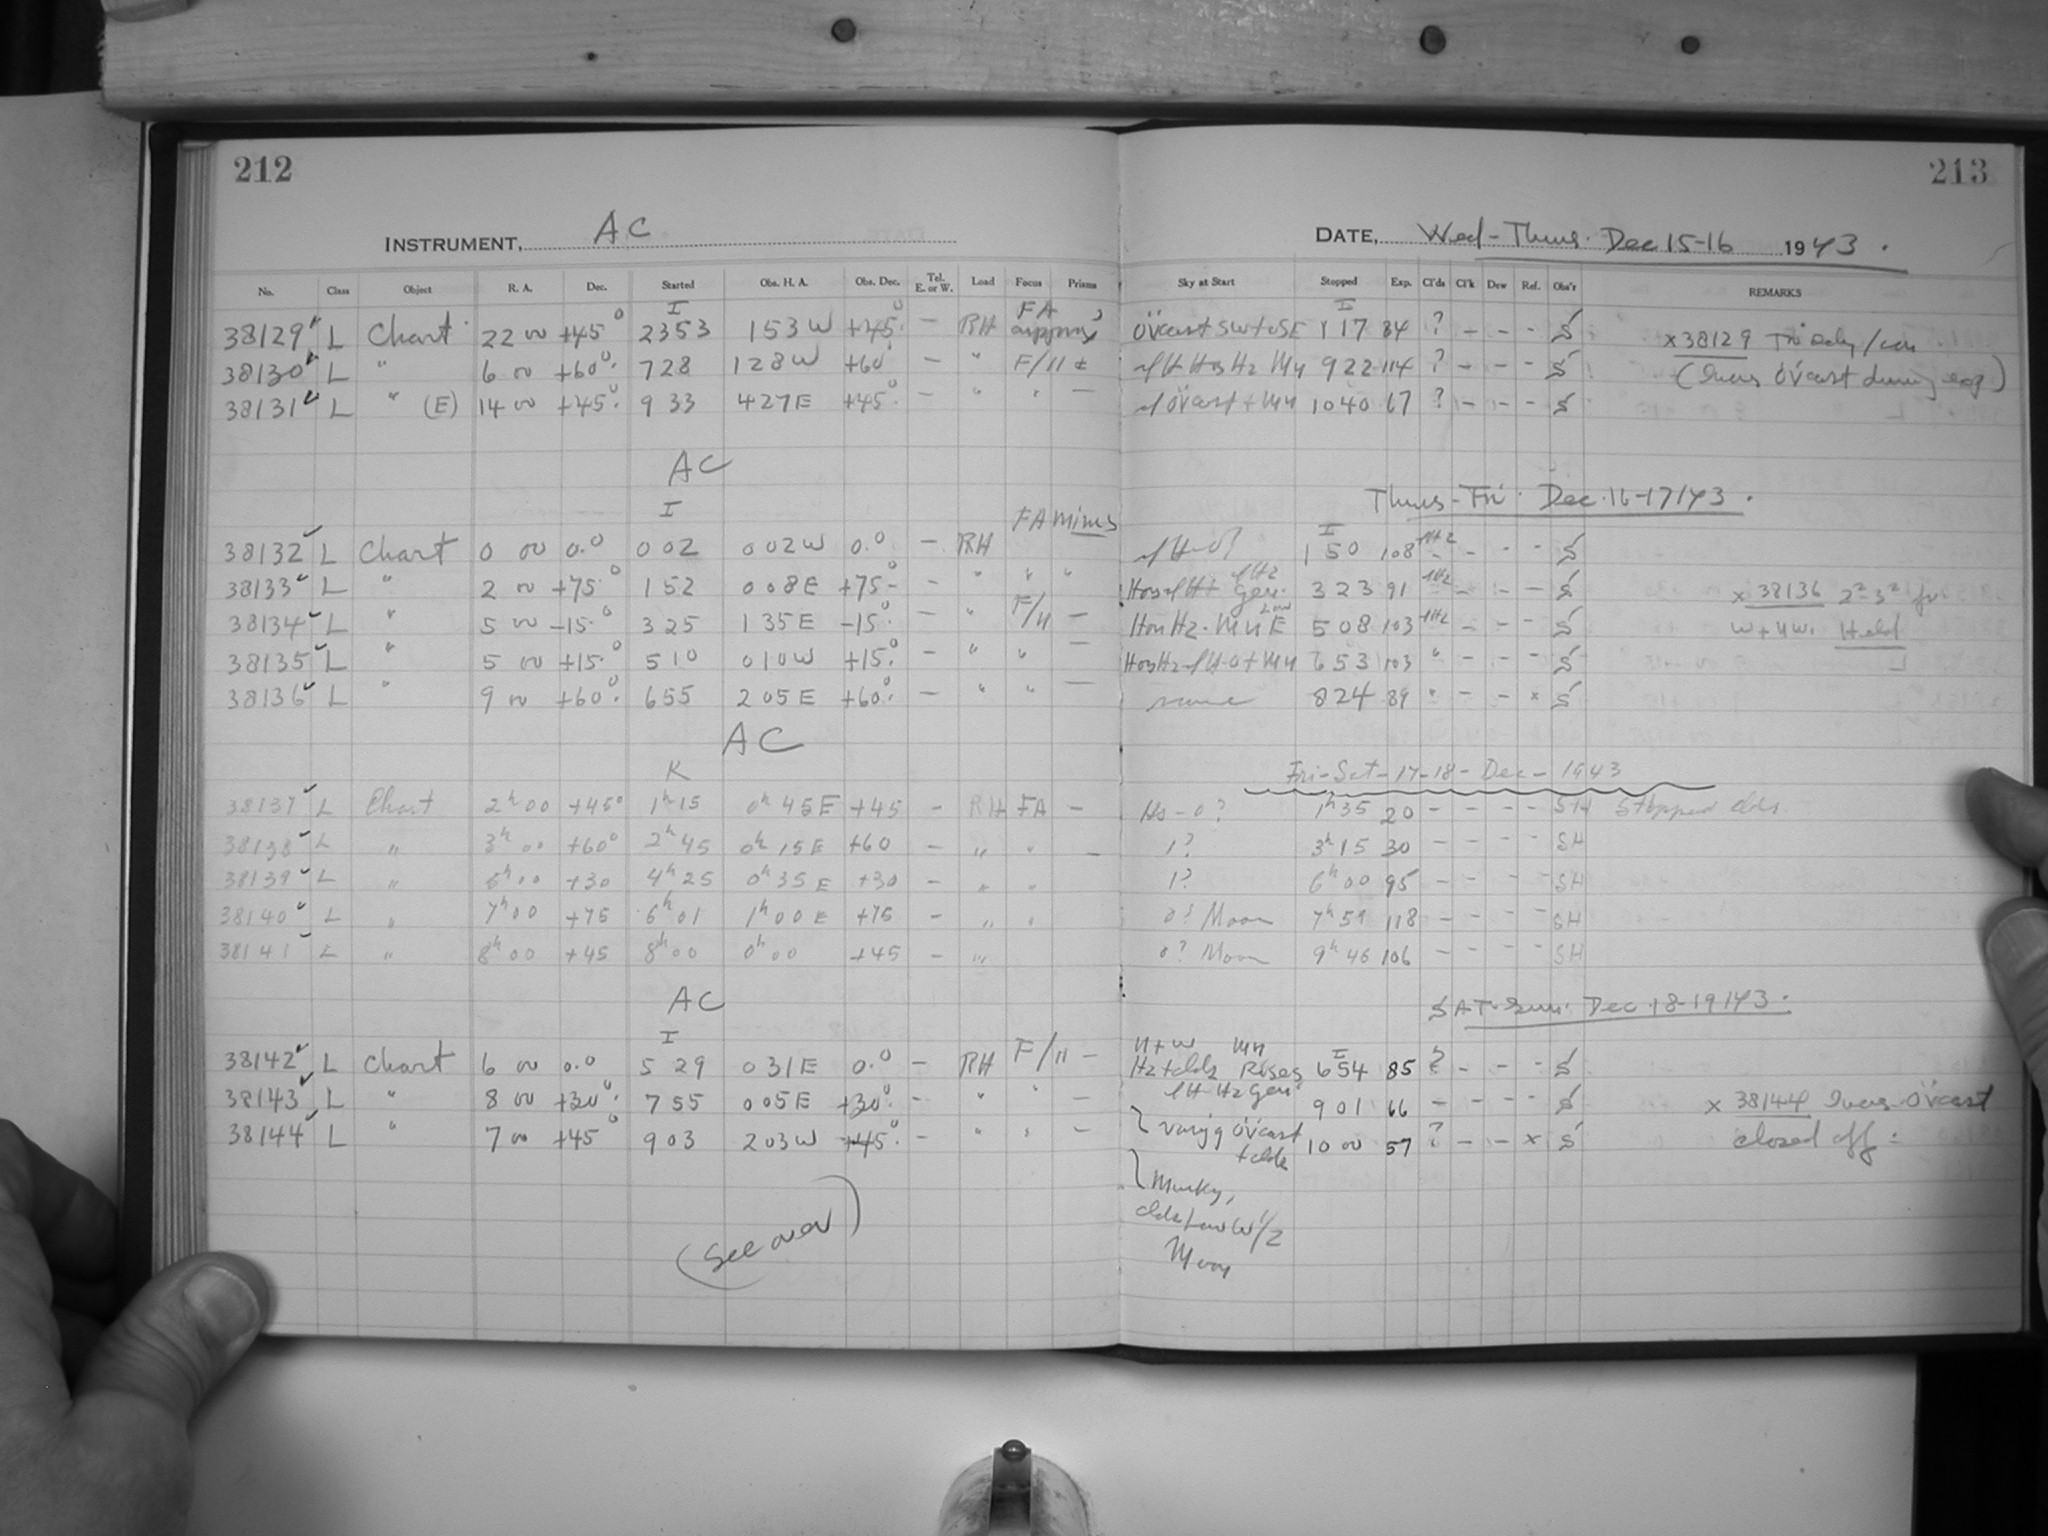 212 213
INSTRUMENT, AC DATE, Wed-Thurs. Dec 15-16 1943.
No. Class Object R. A. Dec. Started Obs. H. A. Obs. Dec. Tel. E. or W. Load Focus Prisms Sky at Start Stopped Exp. Cl'ds Cl'k Dew Ref. Obs'r REMARKS
I FA I
38129 L Chart 22 00 +45° 2353 153W +45° - RH approx Overcast SW to SE 117 84 ? - - - S x38129
38130 L " 6 00 +60° 728 128W +60° - " F/11 ± Hz Mn 922 114 ? - - - S (overcast during exp.)
38131 L " (E) 14 00 +45° 933 427E +45° - " " - overcast + Mn 1040 67 ? - - - S
AC
Thurs-Fri. Dec. 16-17/43.
I FA minus I
38132 L Chart 0 00 0.° 002 002W 0.° - RH 150 108 - - - S
38133 L " 2 00 +75° 152 008E +75° - " " " Gen. 323 91 - - - S x 38136 2² 3²
38134 L " 5 00 -15° 325 135E -15° - " F/11 - Hz. Mn E Low 508 103 - - - S W + NW. Held
38135 L " 5 00 +15° 510 010W +15° - " " 653 103 " - - - S
38136 L " 9 00 +60° 655 205E +60° - " " - same 824 89 " - - x S
AC
K Fri-Sat-17-18-Dec-1943
38137 L Chart 2ʰ00 +45° 1ʰ15 0ʰ45E +45 - RH FA - Hs-0? 1ʰ35 20 - - - - SH Stopped clds.
38138 L " 3ʰ00 +60° 2ʰ45 0ʰ15E +60 - " " - 1? 3ʰ15 30 - - - - SH
38139 L " 5ʰ00 +30 4ʰ25 0ʰ35E +30 - " " 1? 6ʰ00 95 - - - - SH
38140 L " 7ʰ00 +75 6ʰ01 1ʰ00E +75 - " " 0? Moon 7ʰ59 118 - - - - SH
38141 L " 8ʰ00 +45 8ʰ00 0ʰ00 +45 - " 0? Moon 9ʰ46 106 - - - - SH
AC SAT-Sun. Dec. 18-19/43.
I N+W Mn I
38142 L Chart 6 00 0.° 529 031E 0.° - RH F/11 - Hz + clds Rises 654 85 ? - - - S
38143 L " 8 00 +30° 755 005E +30° - " " - Hz Gen 901 66 - - - - S x 38144 overcast
38144 L " 7 00 +45° 903 203W +45° - " " - varying overcast + clds 1000 57 ? - - x S closed off.
Murky,
clds low W 1/2
Moon
(See over)